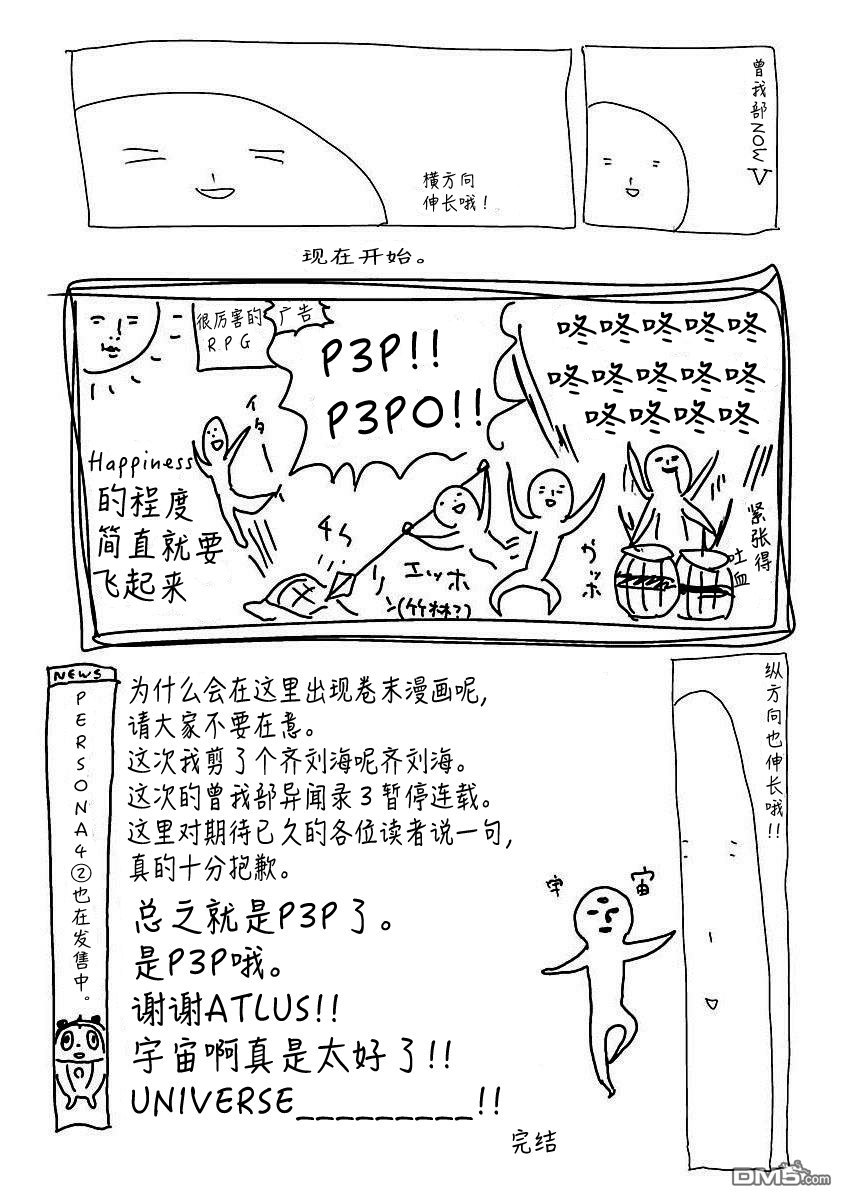 曾我部NOW
横方向
伸长哦！
现在开始。
很厉害的
RPG
广告
P3P!!
P3PO!!
咚咚咚咚咚
咚咚咚咚咚
咚咚咚咚
Happiness
的程度
简直就要
飞起来
イタ
エッホ
(竹林?)
ガッホ
紧张得
吐血
NEWS
PERSONA4②也在发售中。
为什么会在这里出现卷末漫画呢,
请大家不要在意。
这次我剪了个齐刘海呢齐刘海。
这次的曾我部异闻录3暂停连载。
这里对期待已久的各位读者说一句,
真的十分抱歉。
总之就是P3P了。
是P3P哦。
谢谢ATLUS!!
宇宙啊真是太好了!!
UNIVERSE_________!!
完结
宇宙
纵方向也伸长哦!!
DM5.com